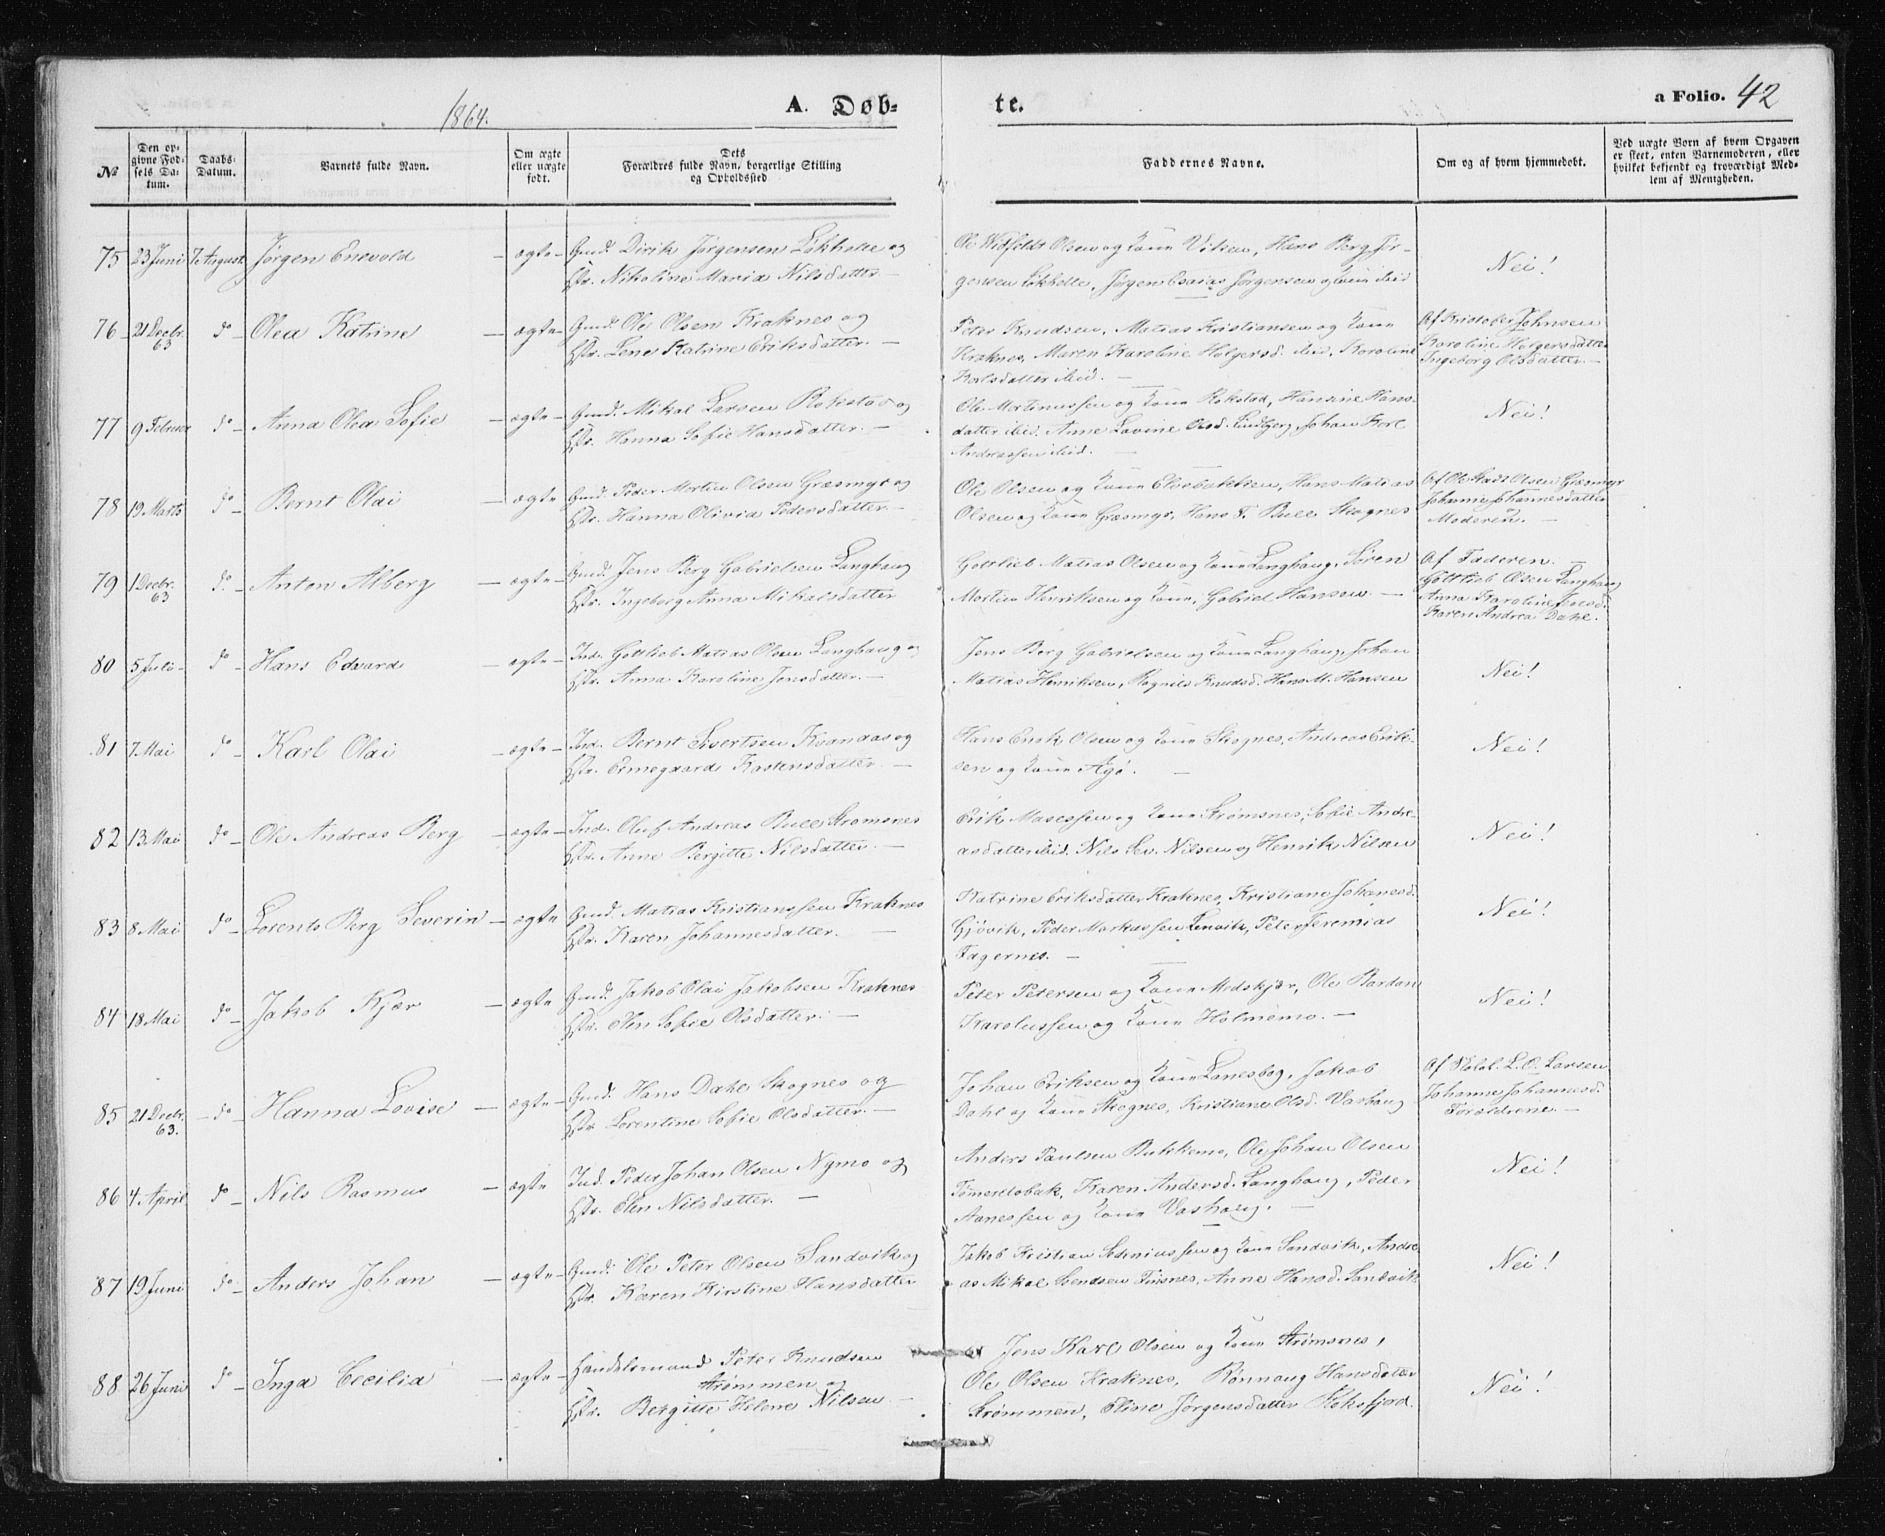 1864.
A. Døb-
te.
a Folio. 42
No
Den op-
givne Fød-
sels Da-
tum.
Daabs-
Datum.
Barnets fulde Navn.
Om ægte
eller uægte
født.
Dets
Forældres fulde Navn, borgerlige Stilling
og Opholdssted
Faddernes Navne.
Om og af hvem hjemmedøbt.
Ved uægte Børn af hvem Opgaven
er skeet, enten Barnemoderen, eller
hvilket bekjendt og troværdigt Med-
lem af Menigheden.
75 23 Juni 7 August Jørgen Enevold – ægte – Gmd. Dirik Jørgensen Løkhelle og
Hstr. Nikoline Maria Nilsdatter –
Ole Widfeldt Olsen og kone Viken, Hans Berg Jør-
gensen Løkhelle, Jørgen Esaias Jørgensen og kone ibid
Nei!
76 21 Decbr. 63 do – Olea Katrine – ægte – Gmd. Ole Olsen Kraknes og
Hstr. Lene Katrine Eriksdatter. –
Peter Knudsen, Matias Kristiansen og kone
Kraknes, Maren Karoline Holgersd. ibid, Karoline
Karlsdatter ibid. –
Af Kristofer Johnsen
Karoline Holgersdatter
Ingeborg Olsdatter. –
77 9 Februar do – Anna Olea Sofie – ægte – Gmd. Mikal Larsen Rokstad og
Hstr. Hanna Sofie Hansdatter. –
Ole Mortinussen og kone Rokstad, Hansine Hans-
datter ibid. Anne Lavine Olsd. Lindberg, Johan Karl
Andreassen ibid. –
Nei!
78 19 Marts do – Bernt Olai – ægte – Gmd. Peder Mortin Olsen Græsmyr og
Hstr. Hanna Olivia Pedersdatter –
Ole Olsen og kone Elvebakken, Hans Matias
Olsen og kone Græsmyr, Hans T. Bull Skognes
Af Ole Olsen Græsmyr
Johanne Johannesdatter
Moderen. –
79 1 Decbr. 63 do – Anton Alberg – ægte – Gmd. Jens Berg Gabrielsen Langhaug
Hstr. Ingeborg Anna Mikalsdatter
Gottlieb Matias Olsen og kone Langhaug, Søren
Mortin Henriksen og kone, Gabriel Hansen. –
Af Faderen. –
Gottlieb Olsen Langhaug
Anna Karoline Jensd.
Karen Andrea Dahl.
80 5 Juli – do – Hans Edvard – ægte – Ind. Gottlieb Matias Olsen Langhaug og
Hstr. Anna Karoline Jensdatter. –
Jens Berg Gabrielsen og kone Langhaug, Johan
Matias Henriksen, Ragnild Knudsd. Hans M. Hansen
Nei!
81 7. Mai do – Karl Olai – ægte – Ind. Bernt Sivertsen Kvannaas og
Hstr. Ermegaard Kastensdatter. –
Hans Enok Olsen og kone Skognes, Andreas Erik-
sen og kone Agø. –
Nei!
82 13 Mai do – Ole Andreas Berg – ægte – Ind. Oluf Andreas Bull Strømsnes
Hstr. Anne Bergitte Nilsdatter. –
Erik Masessen og kone Strømsnes, Sofie Andre-
asdatter ibid. Nils Sev. Nilsen og Henrik Nilsen
Nei!
83 8 Mai do – Lorents Berg Severin – ægte – Gmd. Matias Kristianssen Kraknes
Hstr. Karen Johannesdatter. –
Katrine Eriksdatter Kraknes, Kristiane Johannesd.
Gjøvik, Peder Markussen Lenvik, Peter Jeremias
Fagernes. –
Nei!
84 18 Mai do – Jakob Kjær – ægte – Gmd. Jakob Olai Jakobsen Kraknes
Hstr. Elen Sofie Olsdatter. –
Peter Petersen og kone Medskjær, Ole Bardon
Karolussen og kone Holmemo. –
Nei!
85 21 Decbr. 63. – do – Hanna Lovise – ægte – Gmd. Hans Dahl Skognes og
Hstr. Lorentine Sofie Olsdatter. –
Johan Eriksen og kone Lanesbog, Jakob
Dahl og kone Skognes, Kristiane Olsd. Vashaug
Af L. O. Larsen
Johanne Johannesd.
Forældrene. –
86 4. April do – Nils Rasmus – ægte – Ind. Peder Johan Olsen Nymo og
Hstr. Elen Nilsdatter. –
Anders Paulsen Bukkemo, Ole Johan Olsen
Tømmerelvbak, Karen Andersd. Langhaug, Peder
Aanessen og kone Vashaug. –
Nei!
87 19 Juni do – Anders Johan – ægte – Gmd. Ole Peter Olsen Sandvik og
Hstr. Karen Kirstine Hansdatter
Jakob Kristian Sedeniussen og kone Sandvik, Andre-
as Mikal Svendsen Finsnes, Anne Hansd. Sandvik
Nei!
88 26 Juni do – Inga Cecilia – ægte – Handelsmand Peter Knudsen
Strømmen og
Hstr. Bergitte Helene Nilsen –
Jens Karl Olsen og kone Strømsnes,
Ole Olsen Kraknes, Rønnaug Hansdatter
Strømmen, Eline Jørgensdatter Roksfjord.
Nei!